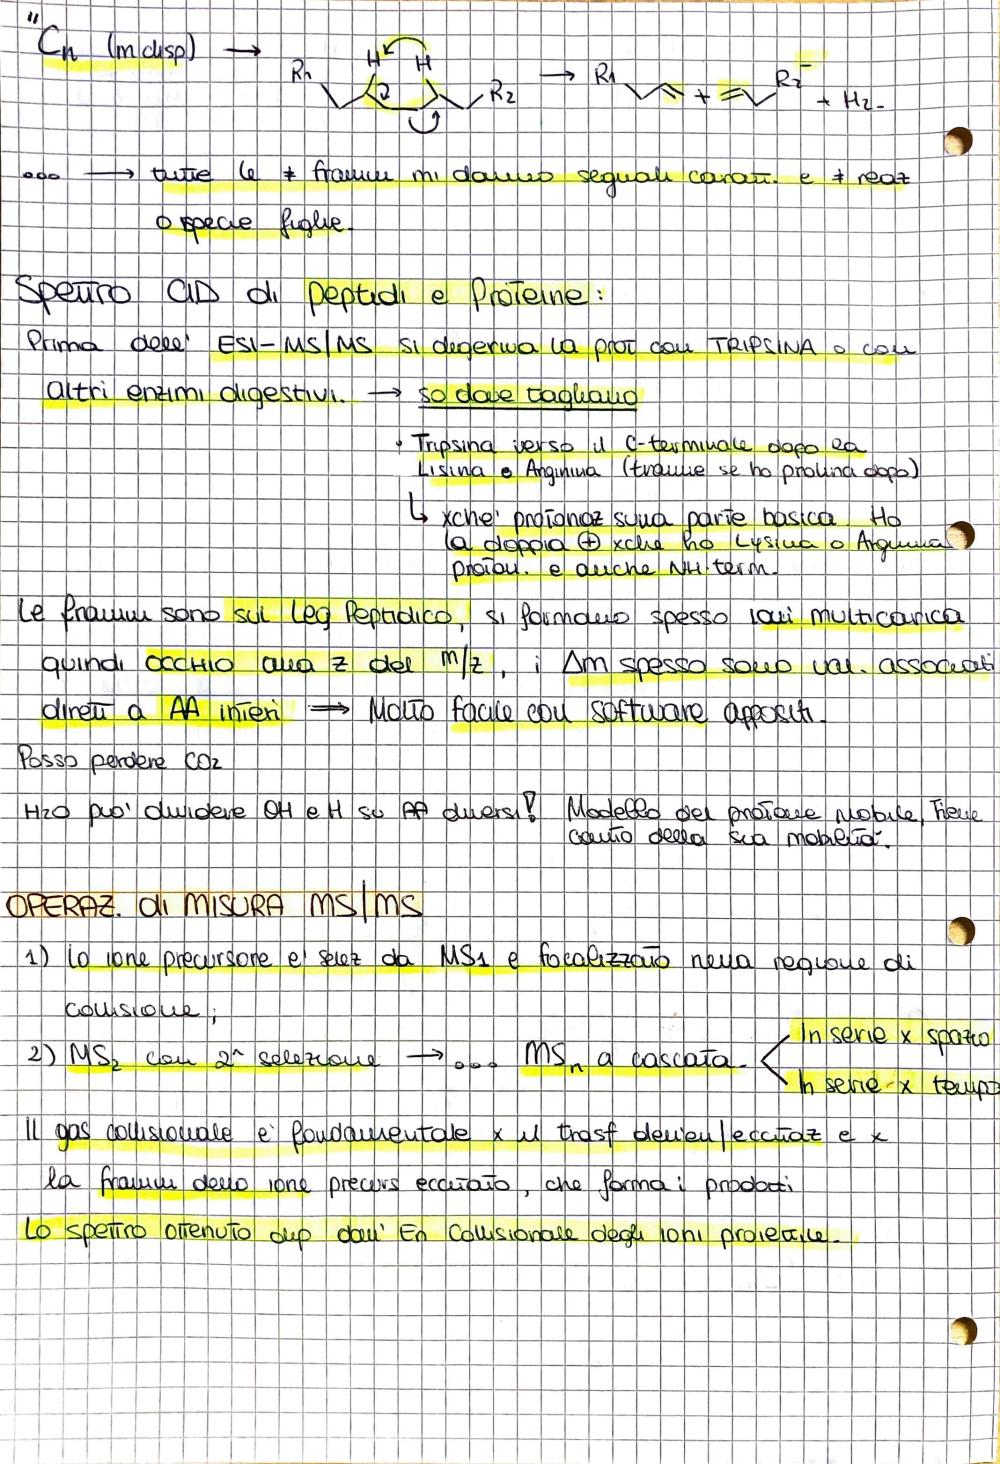 "Cn (m disp) →
H H
R1 R2 → R1 + R2 + H2-
ooo → tutte le ≠ framm mi danno segnali caratt. e ≠ reaz
o specie figlie.
Spettro CID di peptidi e Proteine:
Prima dell' ESI-MS/MS si digeriva la prot con TRIPSINA o con
altri enzimi digestivi. → so dove tagliano
• Tripsina verso il C-terminale dopo la
Lisina o Arginina (tranne se ho prolina dopo)
↳ xche' protonaz sulla parte basica. Ho
la doppia ⊕ xche ho Lysina o Arginina
proton. e anche NH-term.
Le framm sono sul Leg Peptidico, si formano spesso ioni multicarica
quindi OCCHIO alla z del m/z, i Δm spesso sono val. associati
diretti a AA interi ⟹ Molto facile con software appositi.
Posso perdere CO2
H2O puo' dividere OH e H su AA diversi! Modello del protone Mobile, Tiene
conto della sua mobilità.
OPERAZ. di MISURA MS/MS
1) Lo ione precursore e' selez da MS1 e focalizzato nella regione di
collisione;
2) MS2 con 2^ selezione → ooo MSn a cascata. < In serie x spazio
In serie x tempo
Il gas collisionale e' fondamentale x il trasf dell'en/eccitaz e x
la framm dello ione precurs eccitato, che forma i prodotti
Lo spettro ottenuto dip dall' En Collisionale degli ioni proiettile.